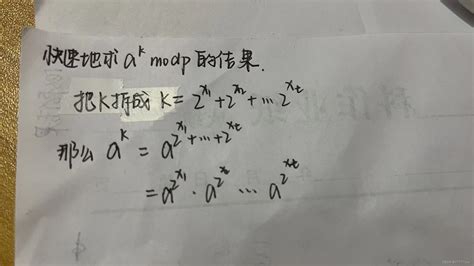 快速地求 a^k mod p 的结果.
把K拆成 K = 2^{x_1} + 2^{x_2} + … 2^{x_t}
那么 a^k = a^{2^{x_1} + … + 2^{x_t}}
= a^{2^{x_1}} · a^{2^{x_2}} … a^{2^{x_t}}